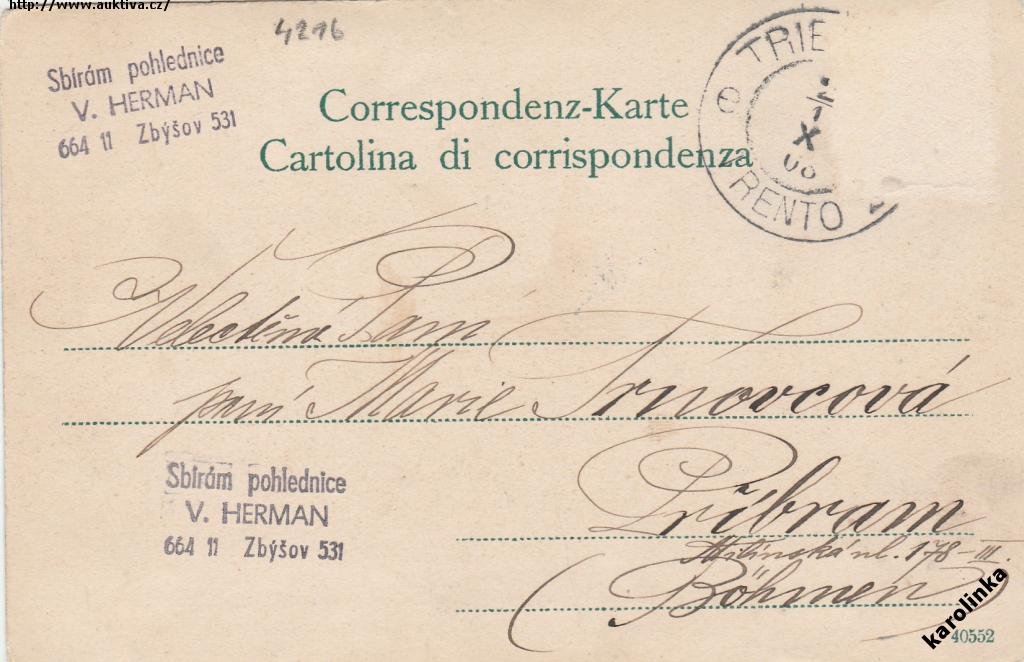 http://www.auktiva.cz/
4216
Sbírám pohlednice
V. HERMAN
664 11 Zbýšov 531
Correspondenz-Karte
Cartolina di corrispondenza
TRIE
X
RENTO
Velectěná Paní
paní Marie Trnovcová
Příbram
Milínská ul. 178-III.
(Böhmen)
Sbírám pohlednice
V. HERMAN
664 11 Zbýšov 531
karolinka
40552